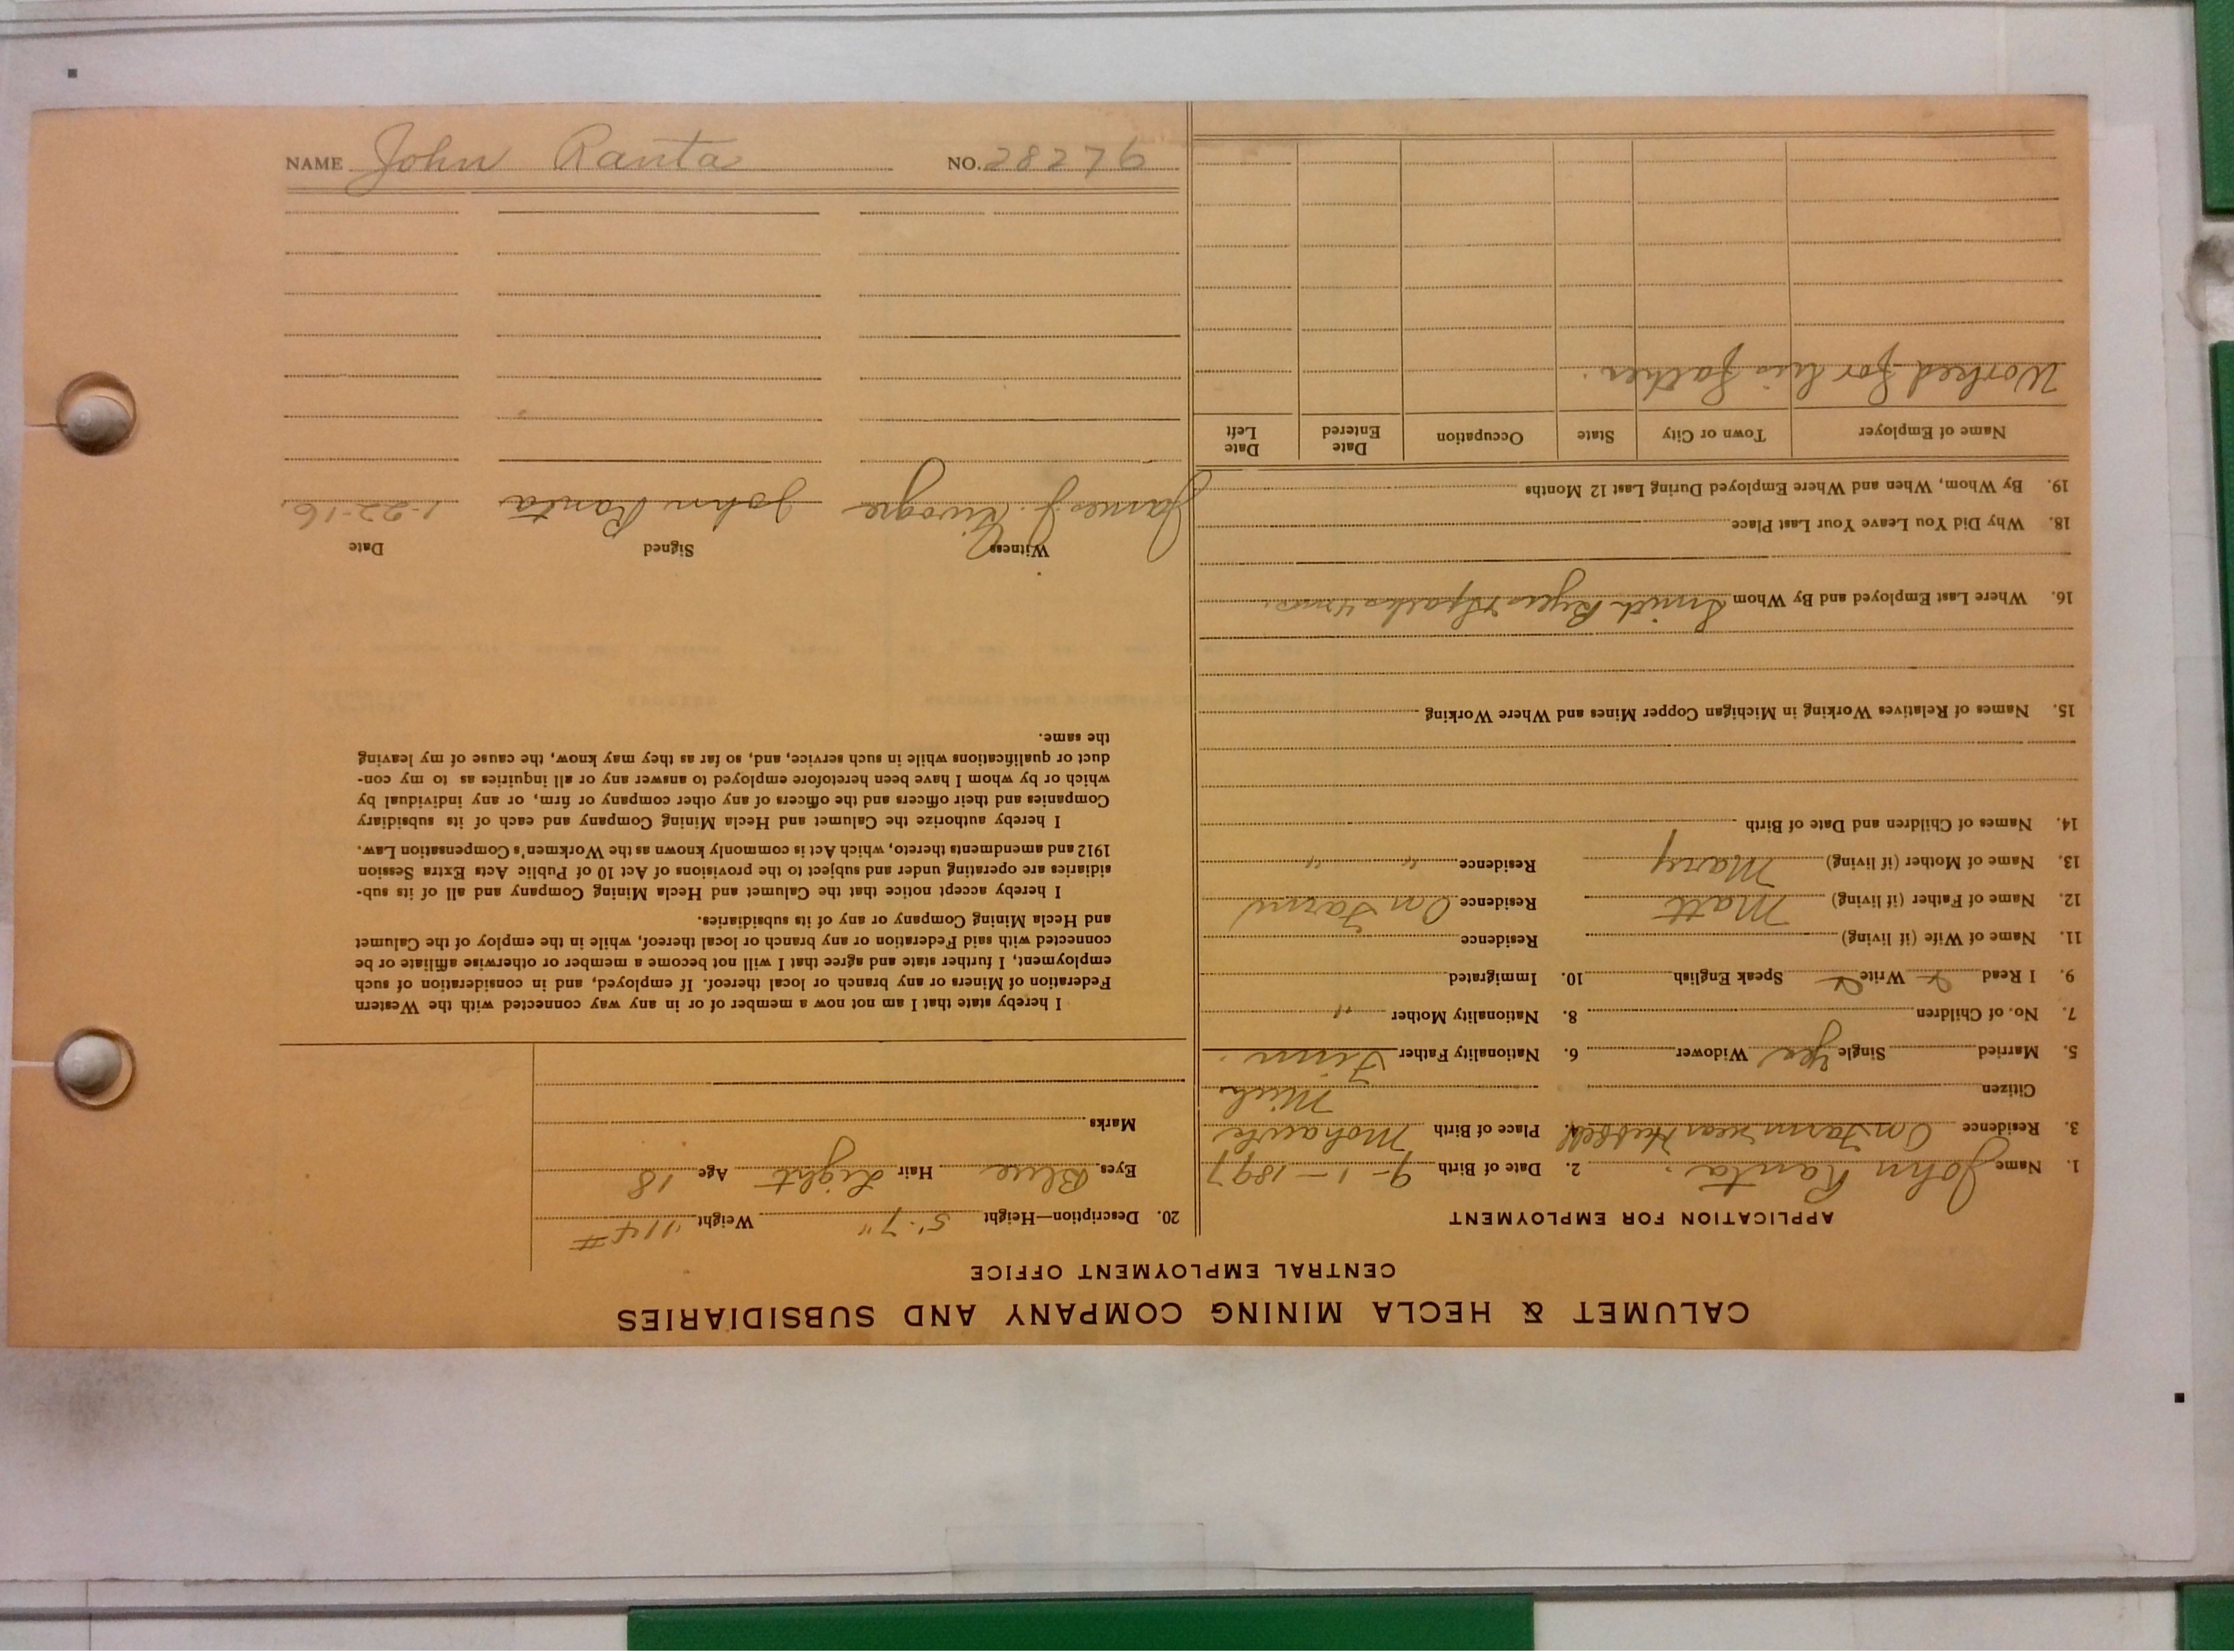 CALUMET & HECLA MINING COMPANY AND SUBSIDIARIES
CENTRAL EMPLOYMENT OFFICE
APPLICATION FOR EMPLOYMENT
1. Name John Ranta. 2. Date of Birth 9-1-1897
3. Residence On Farm near Hubbell 4. Place of Birth Mohawk
Citizen Mich
5. Married Single Yes Widower 6. Nationality Father Finn
7. No. of Children 8. Nationality Mother "
9. I Read Write Speak English 10. Immigrated
11. Name of Wife (if living) Residence
12. Name of Father (if living) Matt Residence On Farm
13. Name of Mother (if living) Mary Residence " "
14. Names of Children and Date of Birth
15. Names of Relatives Working in Michigan Copper Mines and Where Working
16. Where Last Employed and By Whom Smith
18. Why Did You Leave Your Last Place
19. By Whom, When and Where Employed During Last 12 Months
Name of Employer Town or City State Occupation Date Entered Date Left
Worked for his father.
20. Description—Height 5' 7" Weight 114 #
Eyes Blue Hair Light Age 18
Marks
I hereby state that I am not now a member of or in any way connected with the Western
Federation of Miners or any branch or local thereof. If employed, and in consideration of such
employment, I further state and agree that I will not become a member or otherwise affiliate or be
connected with said Federation or any branch or local thereof, while in the employ of the Calumet
and Hecla Mining Company or any of its subsidiaries.
I hereby accept notice that the Calumet and Hecla Mining Company and all of its sub-
sidiaries are operating under and subject to the provisions of Act 10 of Public Acts Extra Session
1912 and amendments thereto, which Act is commonly known as the Workmen's Compensation Law.
I hereby authorize the Calumet and Hecla Mining Company and each of its subsidiary
Companies and their officers and the officers of any other company or firm, or any individual by
which or by whom I have been heretofore employed to answer any or all inquiries as to my con-
duct or qualifications while in such service, and, so far as they may know, the cause of my leaving
the same.
Witness Signed Date
James J. John Ranta 1-22-16
NAME John Ranta NO. 28276